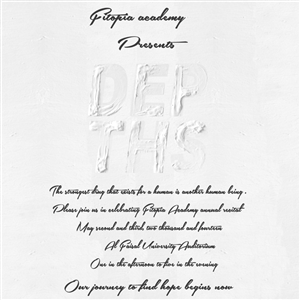 Fitopia academy
Presents
DEP
THS
The strongest drug that exists for a human is another human being.
Please join us in celebrating Fitopia Academy annual recital
May second and third, two thousand and fourteen
Al Faisal University Auditorium
One in the afternoon to five in the evening
Our journey to find hope begins now